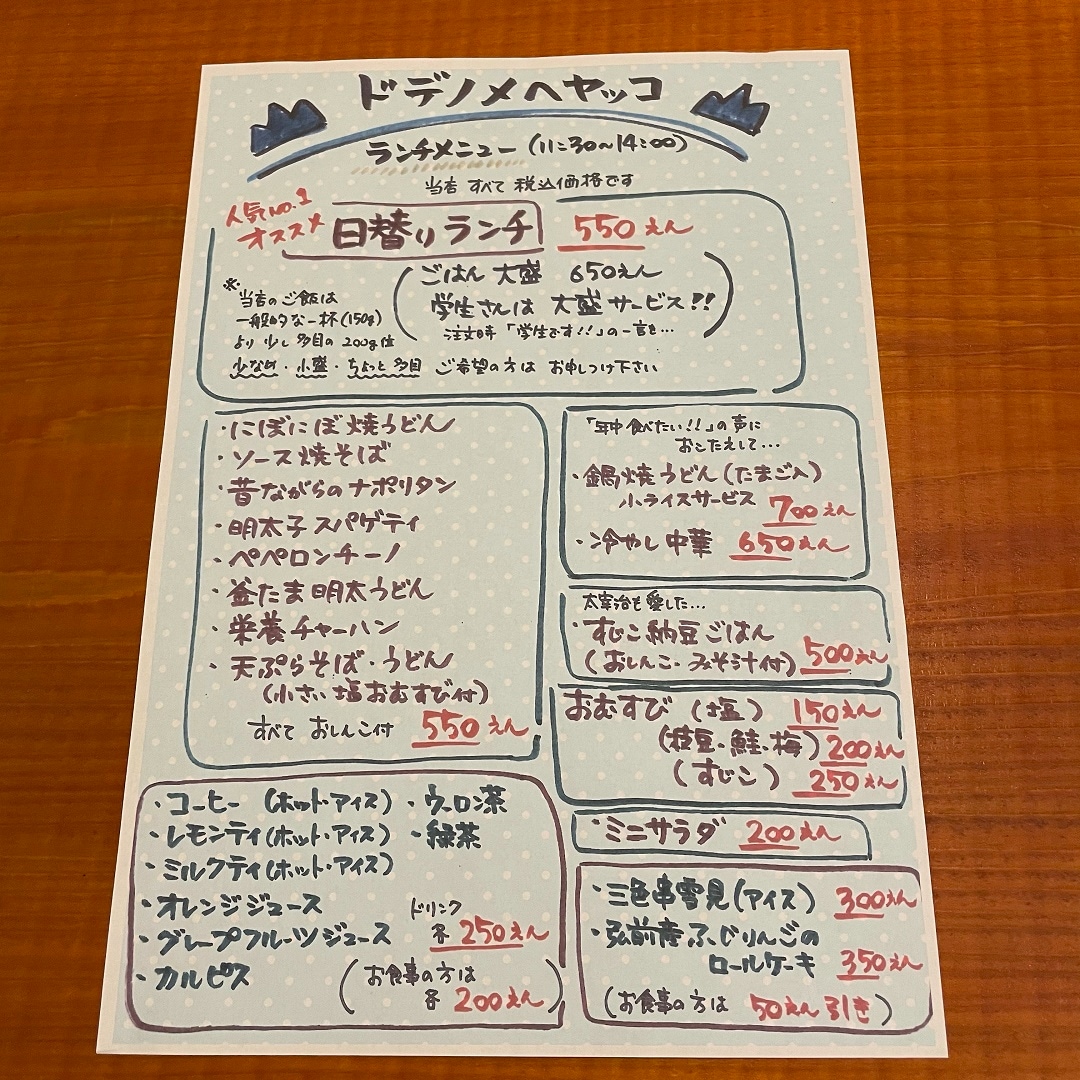 ドデノメヘヤッコ
ランチメニュー (11:30〜14:00)
当店 すべて 税込価格です
人気No.1
オススメ
日替りランチ 550えん
(ごはん 大盛 650えん
学生さんは 大盛サービス!!)
注文時 「学生です!!」の一言を…
※当店のご飯は
一般的な一杯(150g)
より 少し多目の 200g位
少なめ・小盛・ちょっと多目 ご希望の方は お申しつけ下さい
・にぼにぼ焼うどん
・ソース焼そば
・昔ながらのナポリタン
・明太子スパゲティ
・ペペロンチーノ
・釜たま明太うどん
・栄養チャーハン
・天ぷらそば・うどん
(小さい塩おむすび付)
すべて おしんこ付 550えん
「年中食べたい!!」の声に
おこたえして…
・鍋焼うどん(たまご入)
小ライスサービス 700えん
・冷やし中華 650えん
太宰治も愛した…
・すじこ納豆ごはん
(おしんこ・みそ汁付) 500えん
おむすび (塩) 150えん
(枝豆・鮭・梅) 200えん
(すじこ) 250えん
・ミニサラダ 200えん
・コーヒー (ホット・アイス) ・ウーロン茶
・レモンティ(ホット・アイス) ・緑茶
・ミルクティ(ホット・アイス)
・オレンジジュース
・グレープフルーツジュース
・カルピス
ドリンク
各 250えん
(お食事の方は
各 200えん)
・三色串雪見(アイス) 300えん
・弘前産ふじりんごの
ロールケーキ 350えん
(お食事の方は 50えん引き)